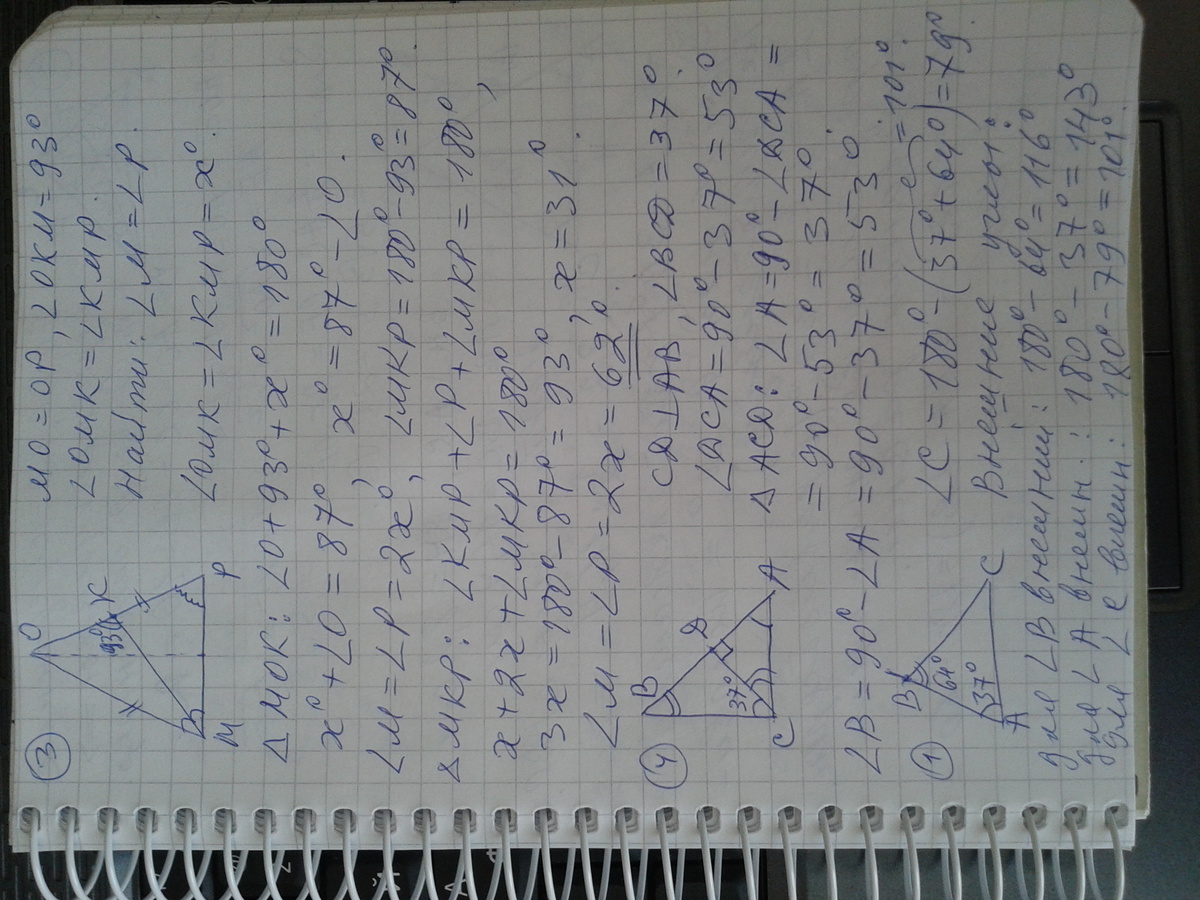 ③
O
93°
K
M
P
MO = OP, ∠OKM = 93°
∠OMK = ∠KMP.
Найти: ∠M = ∠P
∠OMK = ∠KMP = x°.
△MOK: ∠O + 93° + x° = 180°
x° + ∠O = 87°, x° = 87° - ∠O.
∠M = ∠P = 2x°, ∠MKP = 180° - 93° = 87°.
△MKP: ∠KMP + ∠P + ∠MKP = 180°,
x + 2x + ∠MKP = 180°
3x = 180° - 87° = 93°, x = 31°.
∠M = ∠P = 2x = 62°.
④
B
D
37°
C
A
CD ⊥ AB, ∠BCD = 37°.
∠DCA = 90° - 37° = 53°
△ACD: ∠A = 90° - ∠DCA =
= 90° - 53° = 37°.
∠B = 90° - ∠A = 90° - 37° = 53°.
①
B
64°
37°
A
C
= 101°.
∠C = 180° - (37° + 64°) = 79°
Внешние углы:
для ∠B внешний: 180° - 64° = 116°
для ∠A внешн.: 180° - 37° = 143°
для ∠C внешн.: 180° - 79° = 101°.